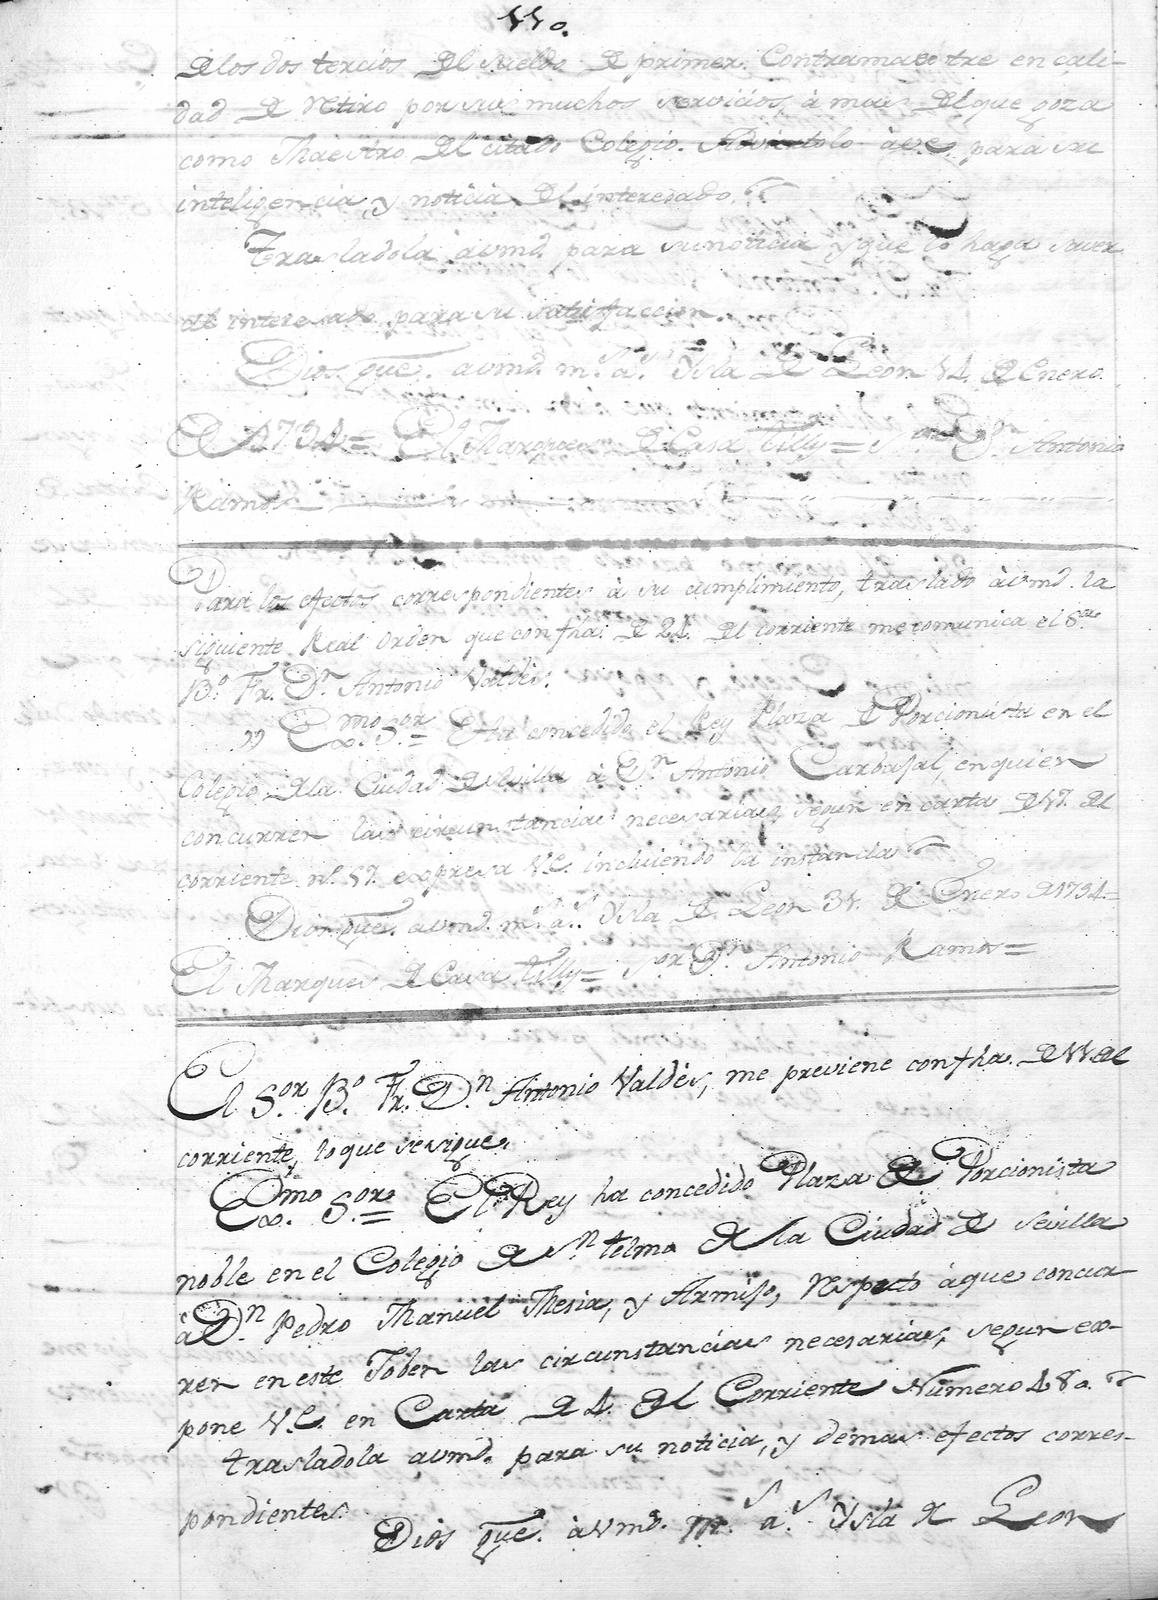 110.
de los dos tercios del sueldo de primer Contramaestre en cali-
dad de retiro por sus muchos servicios, à mas del que goza
como Maestro del citado Colegio. Adviertolo à V.E. para su
inteligencia, y noticia del interesado.
Trasladola à vmd. para su noticia y que lo haga saver
al interesado para su satisfaccion.
Dios gue. a vmd. m.s a.s Ysla de Leon 14. de Enero.
de 1794= El Marques de Casa Tilly= S.or D.n Antonio
Ramos
Para los efectos correspondientes à su cumplimiento, traslado à vmd. la
siguiente Real Orden que con fha. de 24. del corriente me comunica el S.or
B.o Fr. D.n Antonio Valdès.
,, Exmo. S.or= Ha concedido el Rey Plaza de Porcionista en el
Colegio de la Ciudad de Sevilla à D.n Antonio Carbajal, en quien
concurren las circunstancias necesarias, segun en carta de 17. del
corriente n.o 17. expresa V.E. incluiendo la instancia
Dios gue. a vmd. m.s a.s Ysla de Leon 31. de Enero de 1794=
El Marques de Casa Tilly= S.or D.n Antonio Ramos=
El S.or B.o Fr. D.n Antonio Valdès, me previene con fha. de 11 del
corriente, lo que se sigue.
Exmo. S.or= El Rey ha concedido Plaza de Porcionista
noble en el Colegio de S.n telmo de la Ciudad de Sevilla
à D.n Pedro Manuel Mesia, y Armijo, respecto à que concur
ren en este Joben las circunstancias necesarias, segun ex-
pone V.E. en Carta de 4. del Corriente Numero 480.
trasladola a vmd. para su noticia, y demas efectos corres-
pondientes.
Dios gue. à vmd. m.s a.s Ysla de Leon